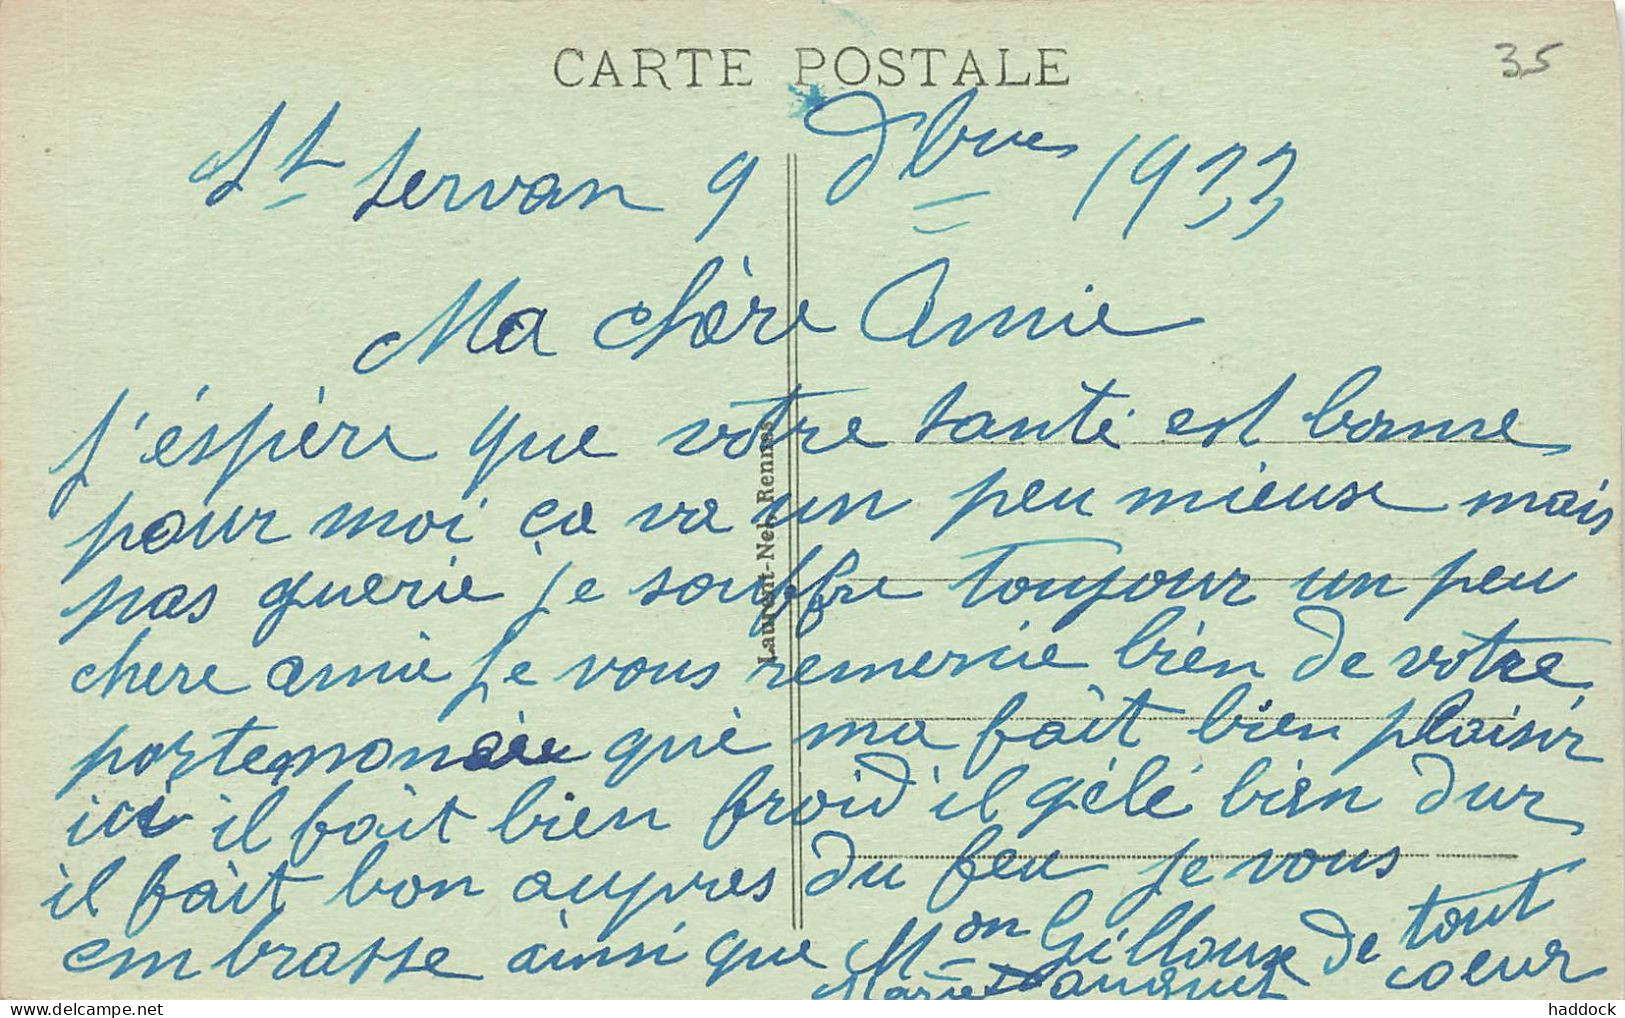 CARTE POSTALE
35
St Servan 9 Dbre 1933
Ma chère Amie
J'éspère que votre santé est bonne
pour moi ça va un peu mieuse mais
pas guerie je souffre toujour un peu
chere amie je vous remercie bien de votre
portemonaie qui ma fait bien plaisir
ici il fait bien froid il gélé bien dur
il fait bon aupres du feu je vous
embrasse ainsi que Mon Gilloux de tout
Marie coeur
Laurent-Nel, Rennes
haddock